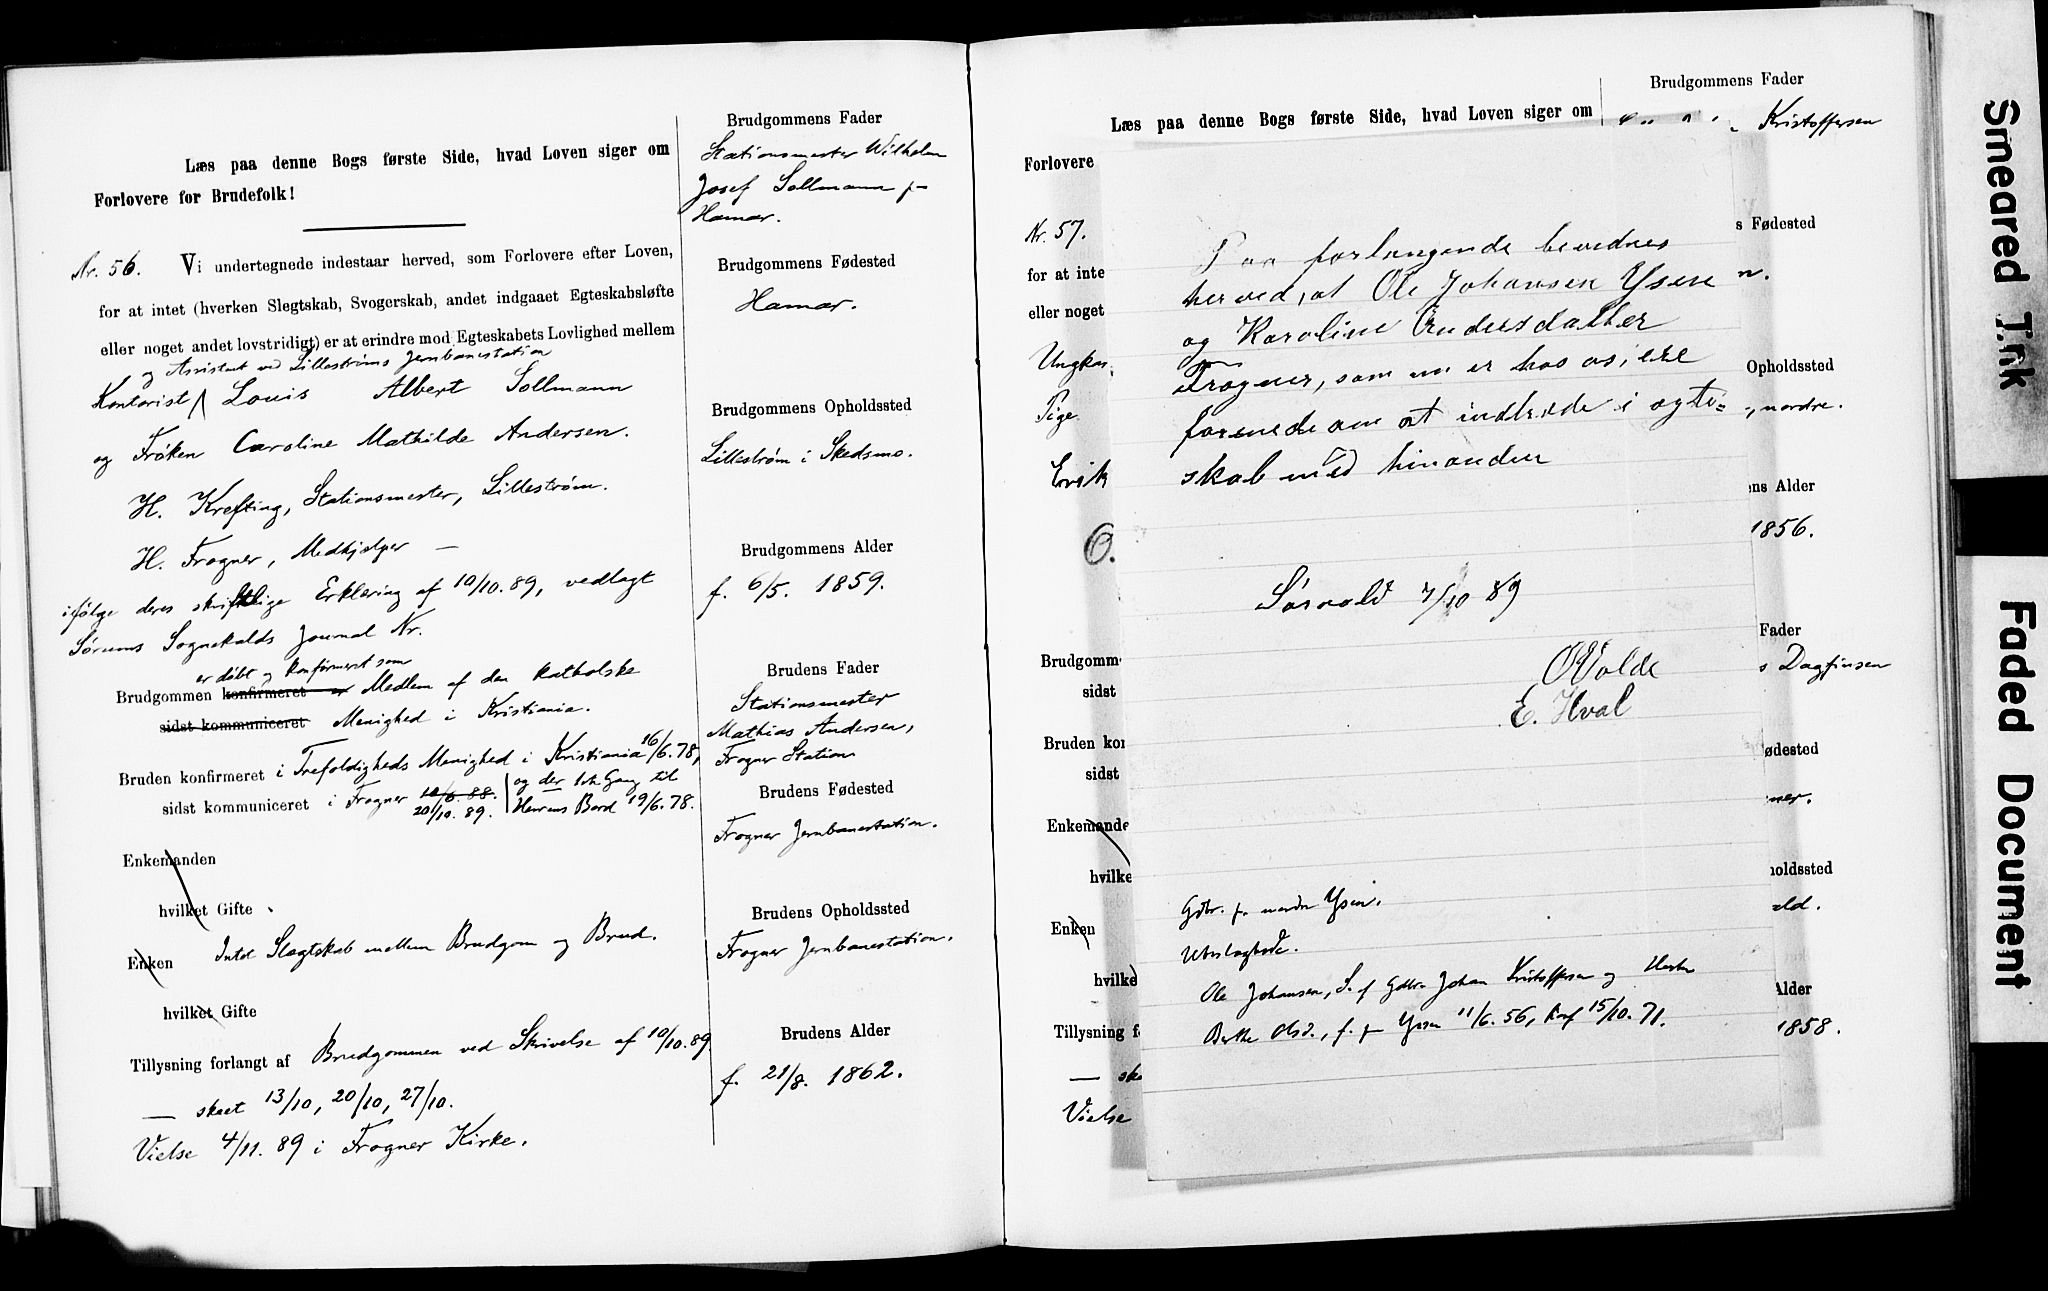 Læs paa denne Bogs første Side, hvad Loven siger om
Forlovere for Brudefolk!
Nr. 56. Vi undertegnede indestaar herved, som Forlovere efter Loven,
for at intet (hverken Slegtskab, Svogerskab, andet indgaaet Egteskabsløfte
eller noget andet lovstridigt) er at erindre mod Egteskabets Lovlighed mellem
og Assistent ved Lillestrøms Jernbanestation
Kontorist Louis Albert Sollmann
og Frøken Caroline Mathilde Andersen.
H. Krefting, Stationsmester, Lillestrøm.
H. Frogner, Medhjelper —
ifølge deres skriftlige Erklæring af 10/10. 89, vedlagt
Sørums Sognekalds Journal Nr.
er døbt og konfirmeret som
Brudgommen konfirmeret er Medlem af den katholske
sidst kommuniceret Menighed i Kristiania.
Bruden konfirmeret i Trefoldigheds Menighed i Kristiania 16/6. 78,
og der 1ste Gang til
sidst kommuniceret i Frogner 10/6. 88. Herrens Bord 19/6. 78.
20/10. 89.
Enkemanden
hvilket Gifte
Enken Intet Slægtskab mellem Brudgom og Brud.
hvilket Gifte
Tillysning forlangt af Brudgommen ved Skrivelse af 10/10. 89
— skeet 13/10, 20/10, 27/10.
Vielse 4/11. 89 i Frogner Kirke.
Brudgommens Fader
Stationsmester Wilhelm
Josef Sollmann p.
Hamar.
Brudgommens Fødested
Hamar.
Brudgommens Opholdssted
Lillestrøm i Skedsmo.
Brudgommens Alder
f. 6/5. 1859.
Brudens Fader
Stationsmester
Mathias Andersen,
Frogner Station
Brudens Fødested
Frogner Jernbanestation.
Brudens Opholdssted
Frogner Jernbanestation.
Brudens Alder
f. 21/8. 1862.
Læs paa denne Bogs første Side, hvad Loven siger om
Forlovere
Nr. 57.
for at inte
eller noget
Ungkar
Pige
Erik
O.
Brudgomm
sidst
Bruden kon
sidst
Enkemande
hvilke
Enken
hvilke
Tillysning f
— sk
Vielse
Paa forlangende bevidnes
herved, at Ole Johansen Ysen
og Karoline Andersdatter
Frogner, som nu er hos os, ere
forenede om at indtræde i ægte=
skab med hinanden
Sørvald 7/10 89
O Volde
E. Hval
Gdbr. p. nordre Ysen.
Ubeslægtede.
Ole Johansen, S. af Gdbr. Johan Kristoffersen og Hustru
Berthe Olsd., f. p. Ysen 11/6. 56, konf 15/10. 71.
Brudgommens Fader
Kristoffersen
s Fødested
n.
Opholdssted
, nordre.
ens Alder
1856.
Fader
s Dagfinsen
ødested
ner.
holdssted
ald.
Alder
1858.
Smeared Ink
Faded Document